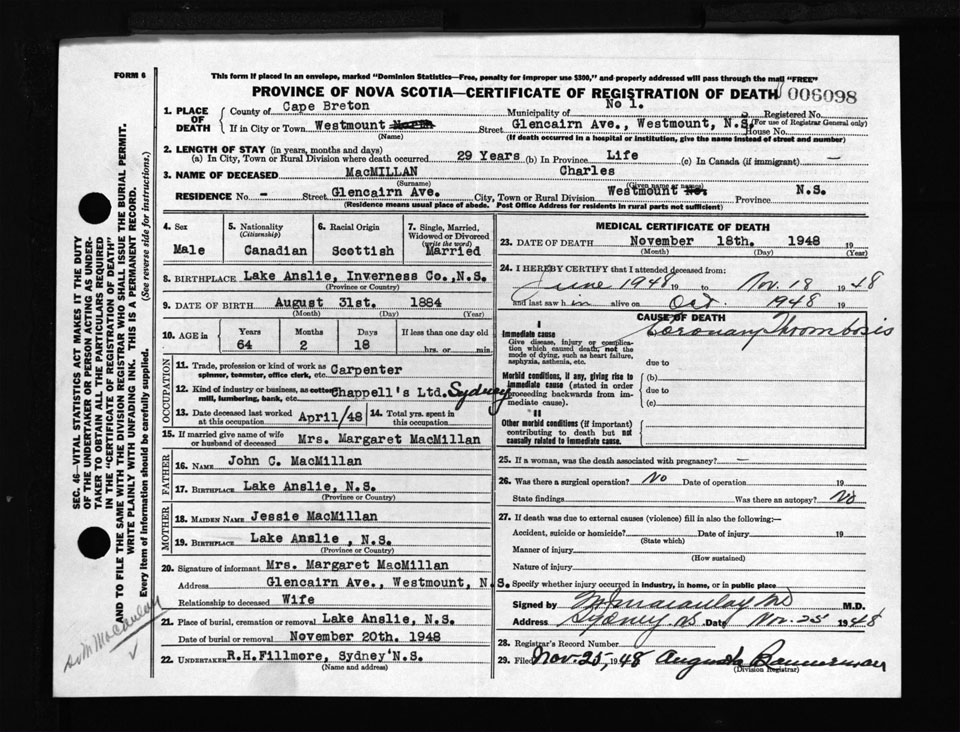 FORM 6
This form if placed in an envelope, marked "Dominion Statistics—Free, penalty for improper use $300," and properly addressed will pass through the mail "FREE"
PROVINCE OF NOVA SCOTIA—CERTIFICATE OF REGISTRATION OF DEATH 006098
1. PLACE OF DEATH
County of Cape Breton Municipality of No 1. Registered No.
(For use of Registrar General only)
If in City or Town Westmount North Street Glencairn Ave., Westmount, N.S. House No.
(Name) (If death occurred in a hospital or institution, give the name instead of street and number)
2. LENGTH OF STAY (in years, months and days)
(a) In City, Town or Rural Division where death occurred 29 Years (b) In Province Life (c) In Canada (if immigrant) —
3. NAME OF DECEASED MacMILLAN Charles
(Surname) (Given name or names)
RESIDENCE No. - Street Glencairn Ave. City, Town or Rural Division Westmount No. Province N.S.
(Residence means usual place of abode. Post Office Address for residents in rural parts not sufficient)
4. Sex
Male
5. Nationality
(Citizenship)
Canadian
6. Racial Origin
Scottish
7. Single, Married, Widowed or Divorced
(write the word)
Married
8. BIRTHPLACE Lake Anslie, Inverness Co., N.S.
(Province or Country)
9. DATE OF BIRTH August 31st. 1884
(Month) (Day) (Year)
10. AGE in Years Months Days If less than one day old
64 2 18 hrs. or min.
OCCUPATION
11. Trade, profession or kind of work as spinner, teamster, office clerk, etc. Carpenter
12. Kind of industry or business, as cotton mill, lumbering, bank, etc. Chappell's Ltd. Sydney
13. Date deceased last worked at this occupation April/48 14. Total yrs. spent in this occupation
15. If married give name of wife or husband of deceased Mrs. Margaret MacMillan
FATHER
16. NAME John C. MacMillan
17. BIRTHPLACE Lake Anslie, N.S.
(Province or Country)
MOTHER
18. MAIDEN NAME Jessie MacMillan
19. BIRTHPLACE Lake Anslie, N.S.
(Province or Country)
20. Signature of informant Mrs. Margaret MacMillan
Address Glencairn Ave., Westmount, N.S.
Relationship to deceased Wife
21. Place of burial, cremation or removal Lake Anslie, N.S.
Date of burial or removal November 20th. 1948
22. UNDERTAKER R.H.Fillmore, Sydney N.S.
(Name and address)
MEDICAL CERTIFICATE OF DEATH
23. DATE OF DEATH November 18th. 1948 19
(Month) (Day) (Year)
24. I HEREBY CERTIFY that I attended deceased from:
June 1948 19 to Nov. 18 1948
and last saw h im alive on Oct. 1948 19
CAUSE OF DEATH
I
Immediate cause Coronary Thrombosis
Give disease, injury or complication which caused death, not the mode of dying, such as heart failure, asphyxia, asthenia, etc.
due to
Morbid conditions, if any, giving rise to immediate cause (stated in order proceeding backwards from immediate cause).
(b)
due to
(c)
II
Other morbid conditions (if important) contributing to death but not causally related to immediate cause.
25. If a woman, was the death associated with pregnancy? —
26. Was there a surgical operation? No Date of operation 19
State findings Was there an autopsy? No
27. If death was due to external causes (violence) fill in also the following:—
Accident, suicide or homicide? Date of injury 19
(State which)
Manner of injury
(How sustained)
Nature of injury
Specify whether injury occurred in industry, in home, or in public place
Signed by M. J. Macaulay MD M.D.
Address Sydney NS Date Nov. 25 1948
28. Registrar's Record Number
29. Filed Nov. 25, 1948 Augusta Bannerman
(Division Registrar)
SEC. 46—VITAL STATISTICS ACT MAKES IT THE DUTY
OF THE UNDERTAKER OR PERSON ACTING AS UNDER-
TAKER TO OBTAIN ALL THE PARTICULARS REQUIRED
IN THE "CERTIFICATE OF REGISTRATION OF DEATH"
AND TO FILE THE SAME WITH THE DIVISION REGISTRAR WHO SHALL ISSUE THE BURIAL PERMIT.
WRITE PLAINLY WITH UNFADING INK. THIS IS A PERMANENT RECORD.
Every item of information should be carefully supplied. (See reverse side for instructions.)
MacAulay